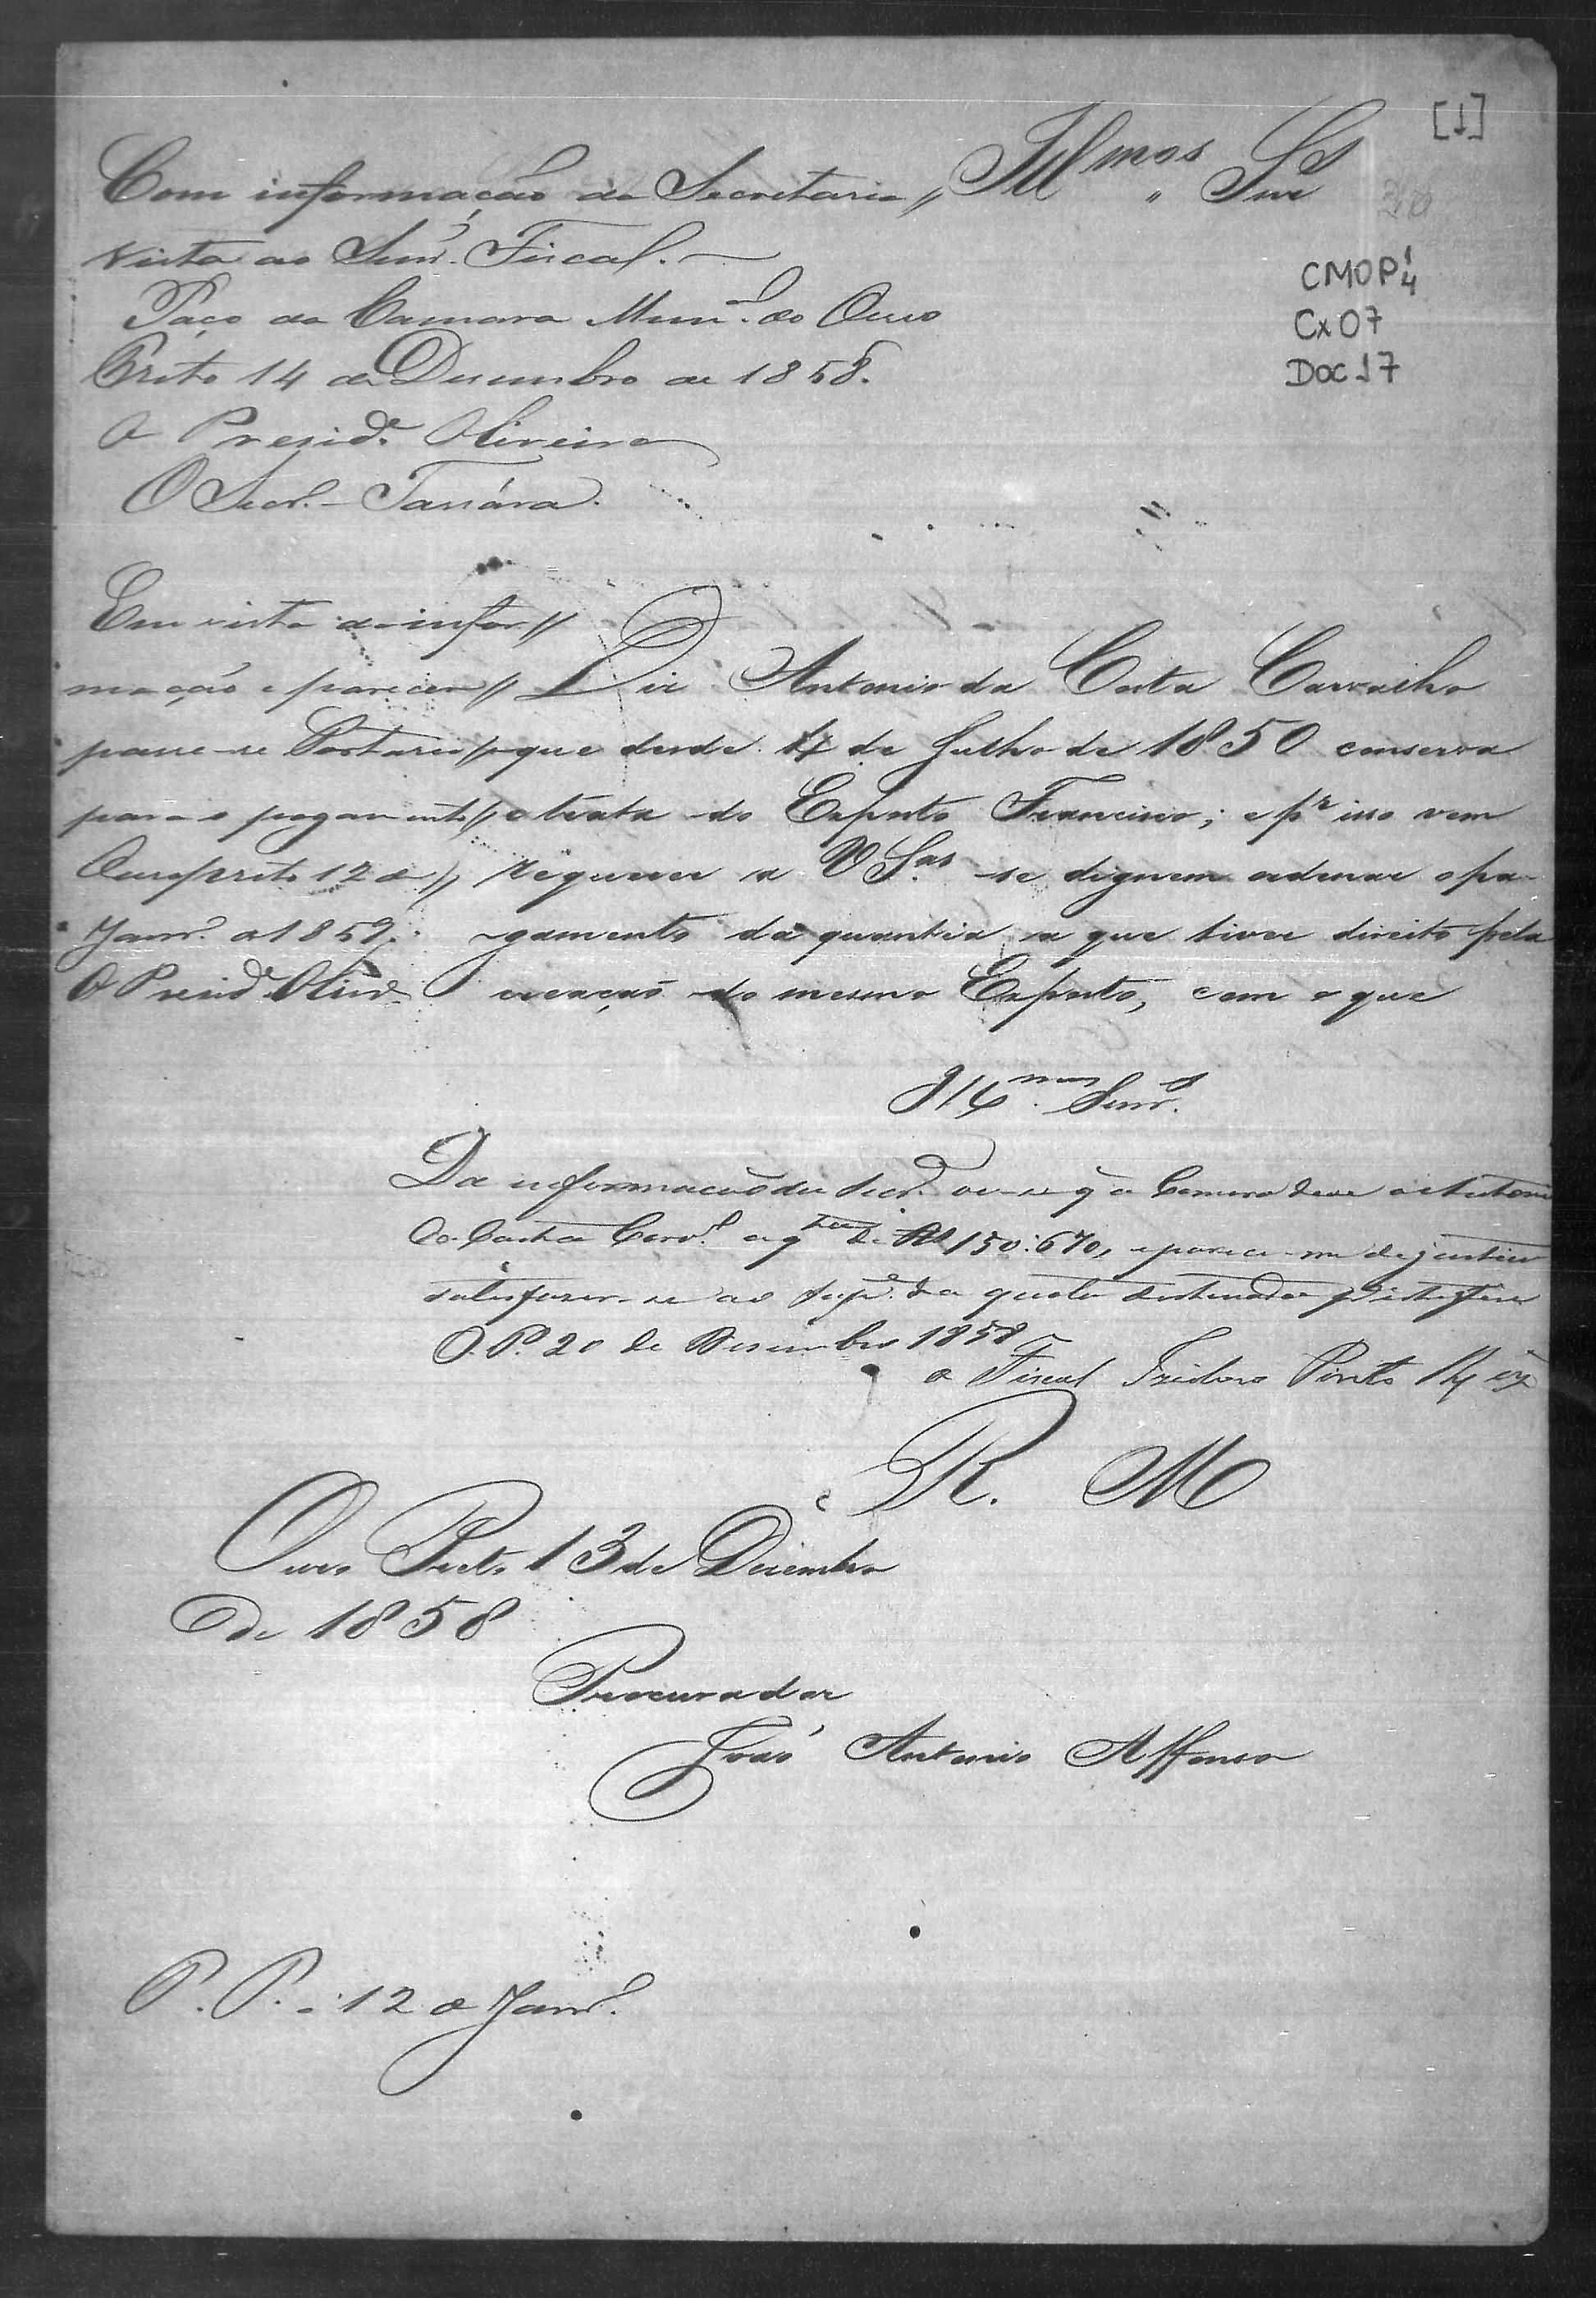 [1]
Illmos Snrs
CMOP 1/4
Cx 07
Doc 17
Com informação da Secretaria
vista ao Snr. Fiscal.
Paço da Camara Munl. do Ouro
Preto 14 de Dezembro de 1858.
O Preside. Oliveira
O Secr.
Em vista da infor
mação e parecer
passe-se Portaria
para o pagamento
Ouro preto 12 de
Janro. de 1859.
O Preside. Olivra.
Diz Antonio da Costa Carvalho
que desde 4 de Julho de 1850 conserva
e trata do Exposto Francisco; e pr. isso vem
requerer a V Sas. se dignem ordenar o pa-
gamento da quantia a que tiver direito pela
creação do mesmo Exposto, com o que
Illmos. Snrs.
Da informação da Secr. ve-se q a Camara deve a Antonio
da Costa Carvo. a qtia de Rs 150:670, e parece-me de justiça
satisfazer-se ao Supe. da quota destinada
O. P. 20 de Dezembro 1858
o Fiscal Izidoro Pinto
E. R. M
Ouro Preto 13 de Dezembro
de 1858
Procurador
João Antonio Affonso
P. P. a 12 de Janro.